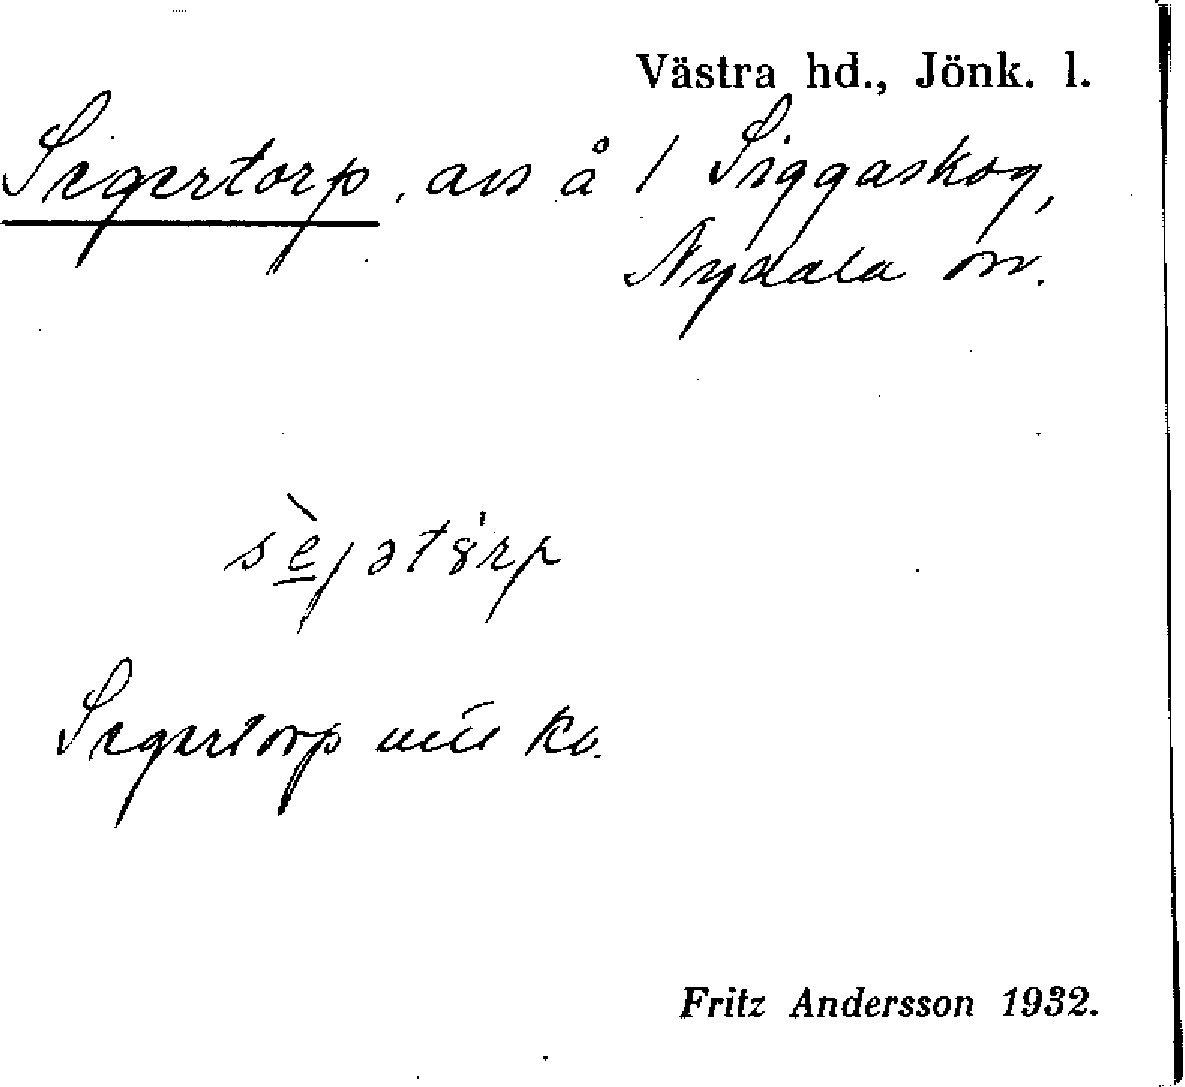 Västra hd., Jönk. l.
Segertorp, avs å 1 Siggaskog,
Nydala sn.
sèjətȣ̍rp
Segertorp enl. kv.
Fritz Andersson 1932.